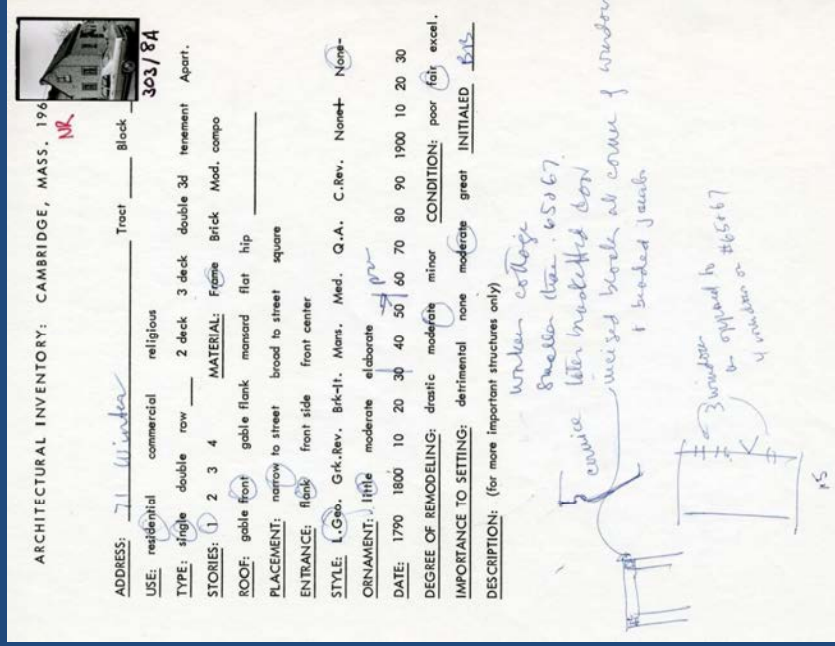 ARCHITECTURAL INVENTORY: CAMBRIDGE, MASS. 196
NR
303/8A
ADDRESS: 71 Winter Tract Block
USE: residential commercial religious
TYPE: single double row 2 deck 3 deck double 3d tenement Apart.
STORIES: 1 2 3 4 MATERIAL: Frame Brick Mod. compo
ROOF: gable front gable flank mansard flat hip
PLACEMENT: narrow to street broad to street square
ENTRANCE: flank front side front center
STYLE: L.Geo. Grk.Rev. Brk-It. Mans. Med. Q.A. C.Rev. None+ None-
ORNAMENT: little moderate elaborate
DATE: 1790 1800 10 20 30 40 50 60 70 80 90 1900 10 20 30
DEGREE OF REMODELING: drastic moderate minor CONDITION: poor fair excel.
IMPORTANCE TO SETTING: detrimental none moderate great INITIALED
DESCRIPTION: (for more important structures only)
workers cottage
smaller than 65&67.
cornice later bracketed door
incised blocks at corner of window
& beaded jambs
3 windows
as opposed to
4 windows on #65&67